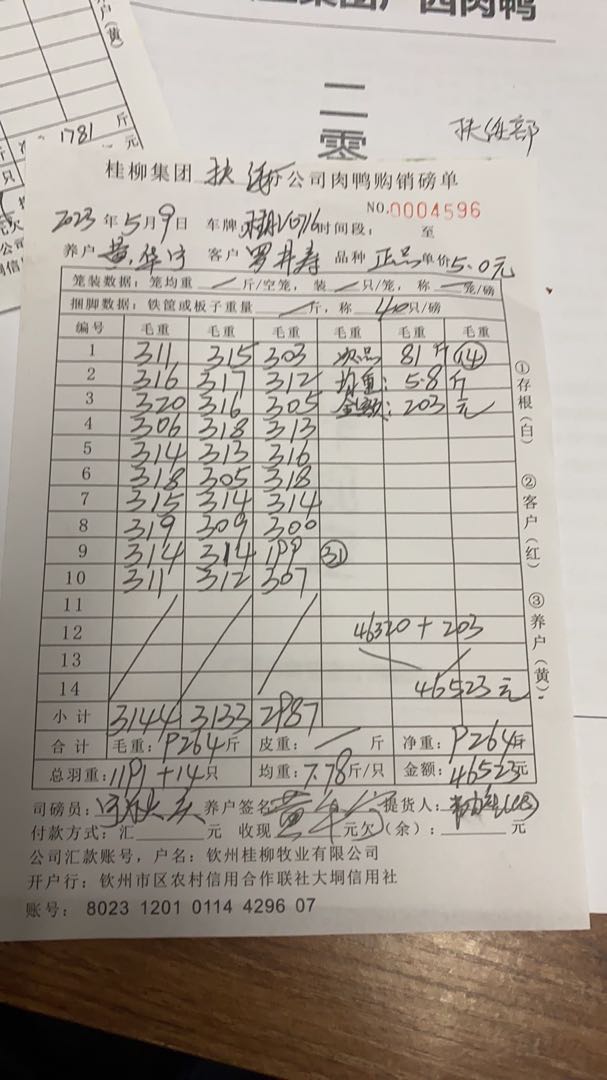 户(黄)
1781 斤
元
二零
扶绥部
桂柳集团 扶绥 公司肉鸭购销磅单
NO.0004596
2023 年 5 月 9 日 车牌 时间段: 至
养户 黄华宁 客户 罗井寿 品种 正品 单价 5.0元
笼装数据:笼均重 / 斤/空笼,装 / 只/笼,称 / 笼/磅
捆脚数据:铁筐或板子重量 / 斤,称 40 只/磅
编号 毛重 毛重 毛重 毛重 毛重 毛重
1 311 315 303 次品 81斤 14
2 316 317 312 均重: 5.8 斤
3 320 316 305 金额: 203 元
4 306 318 313
5 314 313 316
6 318 305 318
7 315 314 314
8 319 309 300
9 314 314 199 31
10 311 312 307
11
12 46320 + 203
13
14 46523元
小计 3144 3133 2987
合计 毛重: 9264斤 皮重: / 斤 净重: 9264斤
总羽重: 1191+14只 均重: 7.78斤/只 金额: 46523元
司磅员: 养户签名 黄华宁 提货人:
付款方式:汇 元 收现 元欠(余): 元
公司汇款账号,户名:钦州桂柳牧业有限公司
开户行:钦州市区农村信用合作联社大垌信用社
账号: 8023 1201 0114 4296 07
①存根(白)
②客户(红)
③养户(黄)